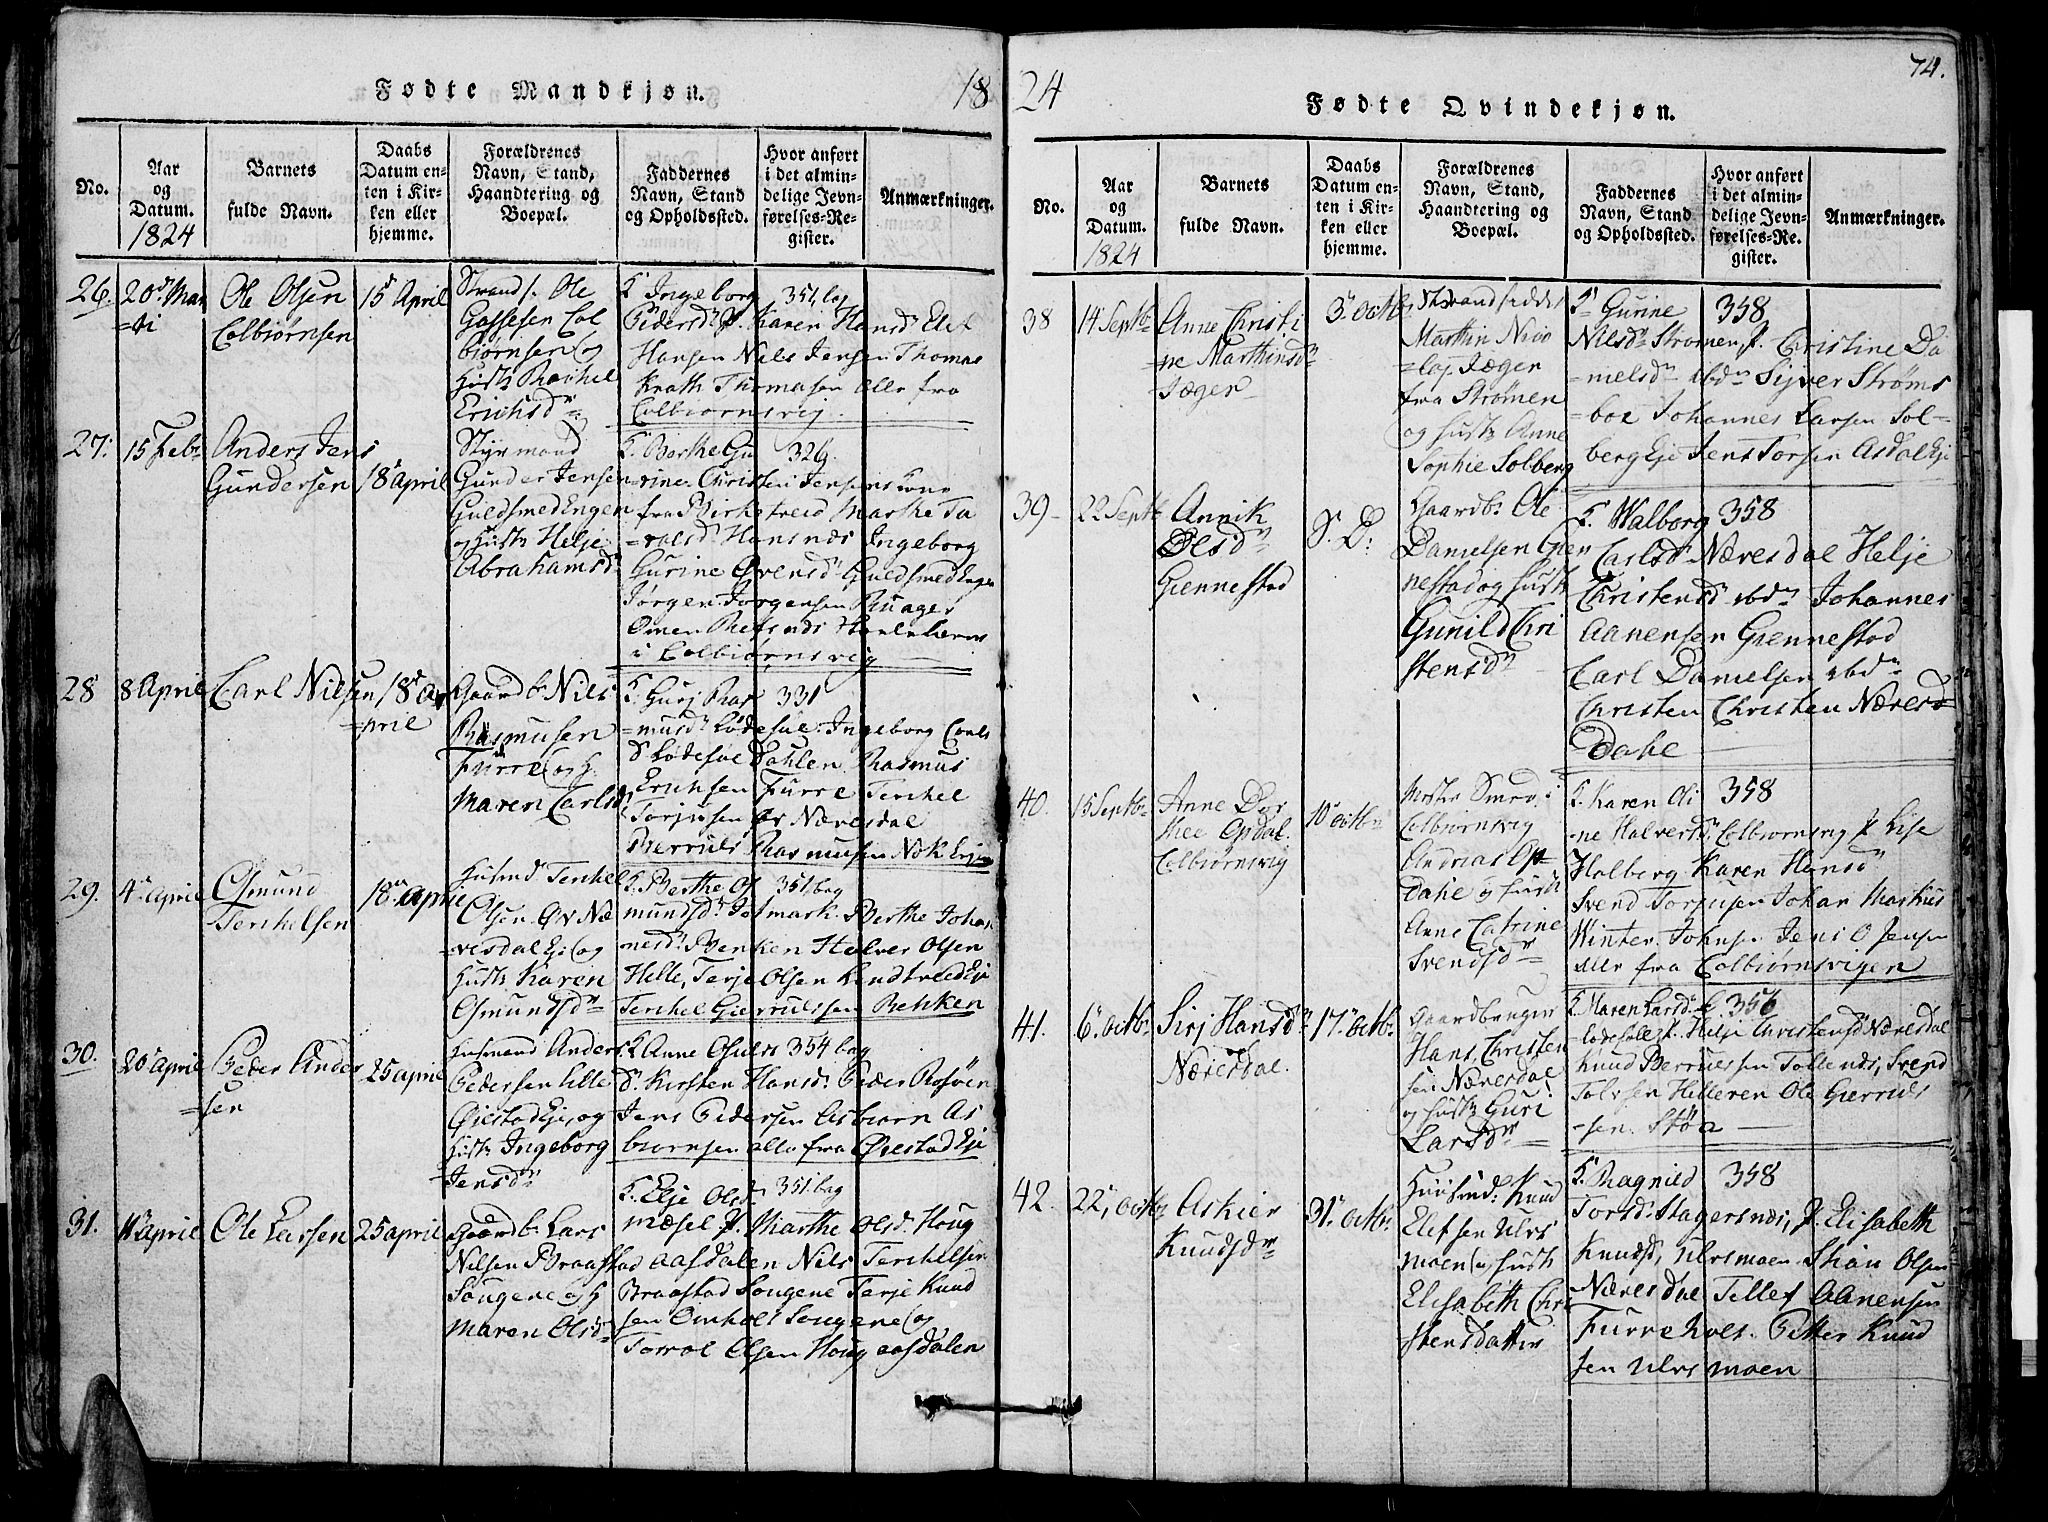 Fødte Mandkjøn.
18
No.
Aar
og
Datum.
1824
Barnets
fulde Navn.
Daabs
Datum en-
ten i Kir-
ken eller
hjemme.
Forældrenes
Navn, Stand,
Haandtering og
Boepæl.
Faddernes
Navn, Stand
og Opholdssted.
Hvor anført
i det almin-
delige Jevn-
førelses-Re-
gister.
Anmærkninger.
26.
20de Mar
=ti
Ole Olsen
Colbiørnsen
15d April
Strands. Ole
Gassesen Col
biørnsen og
Hust. Rachel
Erichsd
Ingeborg 351, bag
Pedersd. Karen Hansd. Elef
Hansen Niels Jensen Thomas
Knath Thomasen alle fra
Colbiørnsvig.
27.
15 Febr.
Anders Jens
Gundersen
18 April
Styrmand
Gunder Jensen
Guldsmedengen
og Hust. Helje
Abrahamsd
Berthe Gu 326.
=rine Christen Jensens kone
fra Birketveid Marthe Ta
=ralsd. Hansnæs Ingeborg
Gurine Øvensd. Guldsmedengen
Jørgen Jorgensen Ruager
i Colbiørnsvig
28
8 April
Carl Nilsen
18d A
=prie
Gaardb. Niels
Rasmusen
Furre og H.
Maren Carlsd
Gurj Ras 331
=musd. Lødesøl. Ingeborg Carls
D Lødesøl Dahlen Rasmus
Erichsen Furre Terchel
Torjusen Øv Næresdal
Berruls Rasmusen
29.
4 April
Osmund
Terchelsen
18 April
Husmd Terchel
Olsen Øv Næ
=resdal Eje og
Hust. Karen
Osmundsd
Berthe Os 351. bag
mundsd. Jotmark. Berthe Johan
nesd. Benken Helver Olsen
Helle, Terje Olsen Lindtveid Eje
Terchel Gierrulssen Behken
30.
20 April
Peder Ander
=sen
25 April
Husmand Anders
Pedersen Lille
Øiestad Eje, og
Hust. Ingeborg
Jensd
Anne Osuls 354 bag
D. Kirsten Hansd. Peder Rosøen
Jens Pedersen Asbiørn As
biørnsen alle fra Øiestad Eje
31.
11 April
Ole Larsen
25 April
Gaardb. Lars
Nilsen Braastad
Sougene og H
Maren Olsd
Elje Olsd. 351. bag
Mæsel. Marthe Olsd. Houg
aasdalen Niels Terchelsen
Braastad Sougene Terje Knud
sen Omholt Sougene og
Torval Olsen Houg aasdalen
24
Fødte Qvindekjøn.
74.
No.
Aar
og
Datum.
1824
Barnets
fulde Navn.
Daabs
Datum en-
ten i Kir-
ken eller
hjemme.
Forældrenes
Navn, Stand,
Haandtering og
Boepæl.
Faddernes
Navn, Stand
og Opholdssted.
Hvor anført
i det almin-
delige Jevn-
førelses-Re-
gister.
Anmærkninger.
38
14 Septb
Anne Christi
=ne Marthinsd
Jæger
3. Octb
Strandsidder
Marthin Nico
=laj Jæger
fra Strømen
og Hust. Anne
Sophie Solberg
Gurine 358
Nilsd. Strømen, Christine Da
=nielsd. ibdm Sijver Strøms
=boe Johannes Larsen Sol-
berg Eje Jens Torsen Asdal Eje
39
22 Septb
Annik
Olsd
Giennestad
S. D.
Gaardb. Ole
Danielsen Gien
nestad og Hust
Gunild Chri
stensd
Walborg 358
Carlsd. Næresdal Helje
Christensd ibdm Johannes
Aanensen Giennestad
Carl Danielsen ibdm
Christen Christen Næresd=
=Dahl
40.
15 Septb
Anne Dor
thee Opdal.
Colbiørnsvig
10 Octb
Mester Smed i
Colbiørnsvig
Andrias Op
Dahl og Hust
Anne Catrine
Svendsd
Karen Oli 358
=ne Halversd. Colbiørnsvig Lise
Holberg Karen Hansd
Svend Torjusen Johan Markus
Winter. Johnsen Jens O Jensen
alle fra Colbiørnsvigen
41.
6 Octb.
Sirj Hansd
Næresdal.
17. Octb.
Gaardbruger
Hans Christen
sen Næresdal
og Hust. Guri
Larsd
Maren Larsd. 356
Lødesøll. Helje Christensd Næresdal
Knud Berruessen Tollenæs, Svend
Tolvsen Helleren Ole Gierruls
-sen. Støa
42.
22, Octb.
Askier
Knudsd
31. Octb.
Huusmd. Knud
Elefsen Ulvs
moen og Hust
Elisabeth Chri
stensdatter
Ragnild 358
Torsd. Stagersnæs, Elisabeth
Knudsd, Ulvsmoen. Stian Olsen
Næresdal Tellef Aanensen
Furreholt. Petter Knud
sen Ulvsmoen